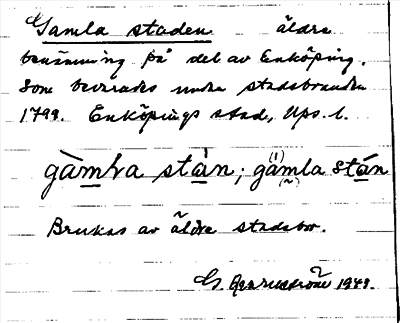 Gamla staden äldre
benämning på del av Enköping,
som bevarades under stadsbranden
1799. Enköpings stad, Ups. l.
gàmla stàn; gamla stán
Brukas av äldre stadsbor.
G. 1949.